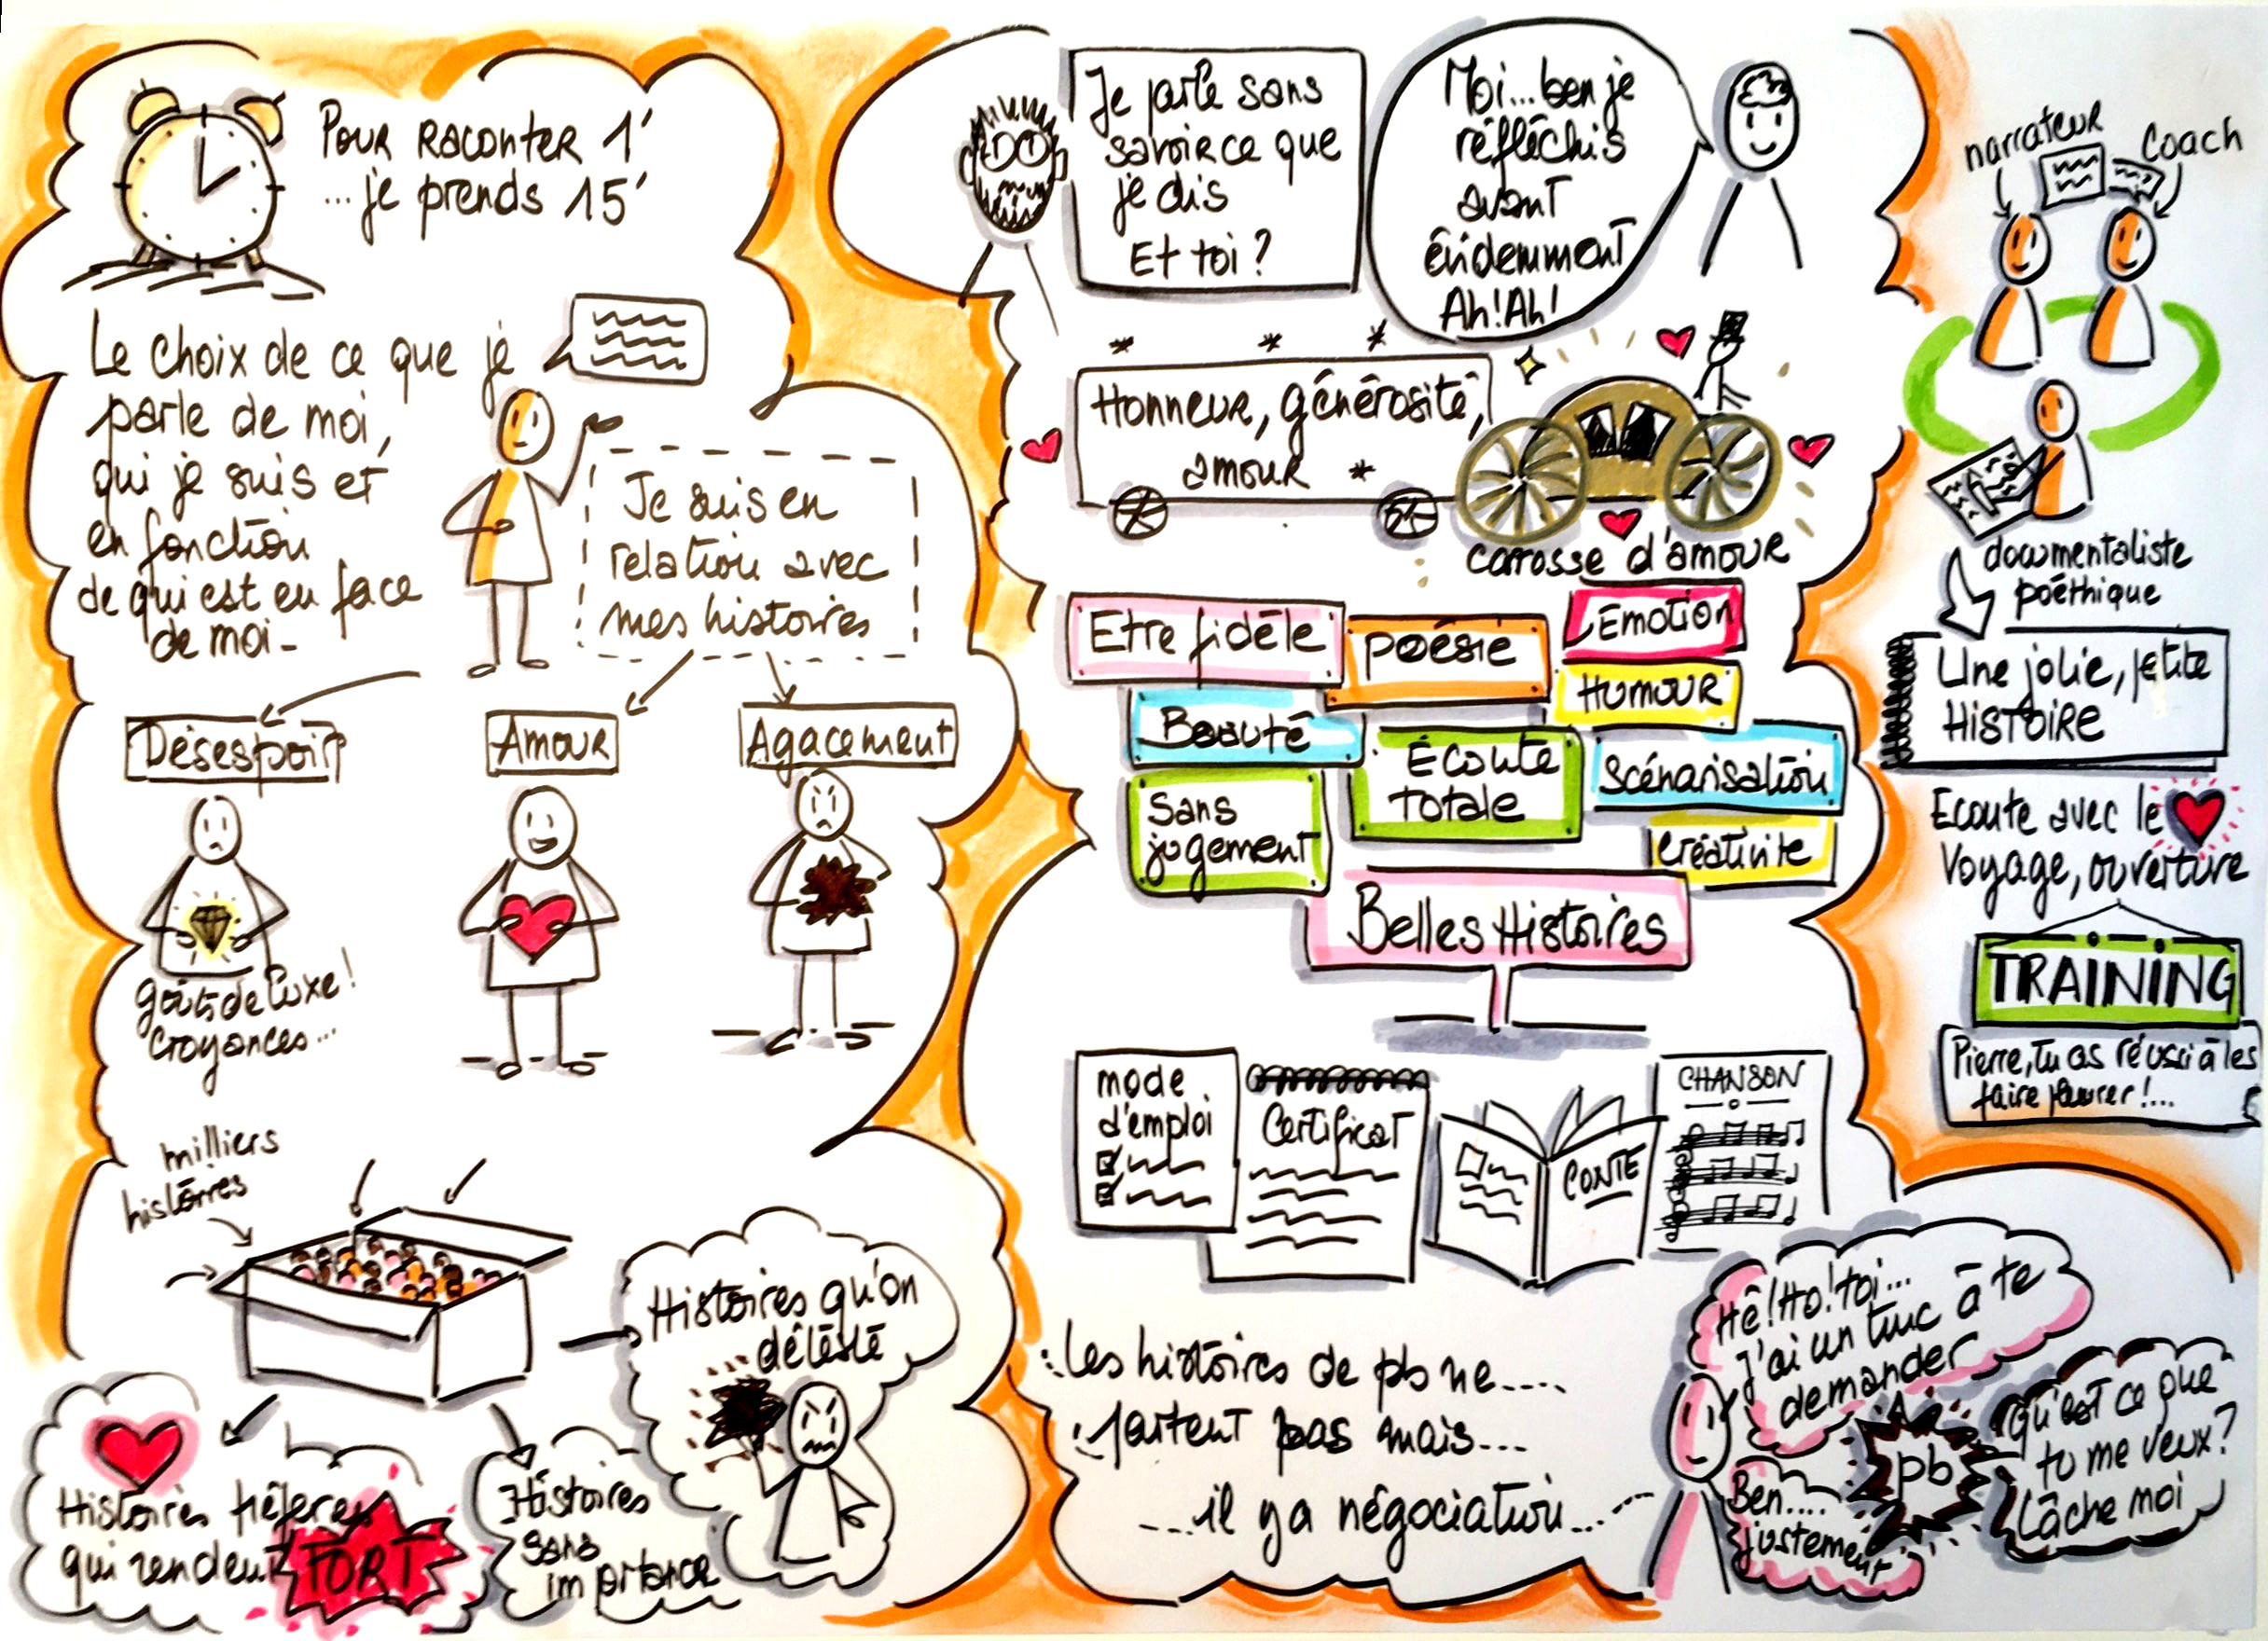 Pour raconter 1'
...je prends 15'
Le choix de ce que je
parle de moi,
qui je suis et
en fonction
de qui est en face
de moi -
Je suis en
relation avec
mes histoires
Désespoir
Amour
Agacement
goûts de luxe!
Croyances...
milliers
histoires
Histoires qu'on
déteste
Histoires préférées
qui rendent
FORT
Histoires
sans
importance
Je parle sans
savoir ce que
je dis
Et toi ?
Moi... ben je
réfléchis
avant
évidemment
Ah! Ah!
Honneur, générosité,
amour
carosse d'amour
Etre fidèle
poésie
Emotion
Humour
Beauté
Écoute
totale
Scénarisation
Sans
jugement
créativité
Belles Histoires
mode
d'emploi
Certificat
CONTE
CHANSON
Les histoires de pb ne....
partent pas mais...
...il y a négociation...
Hé! Ho! toi...
J'ai un truc à te
demander
pb
Qu'est ce que
tu me veux?
Lâche moi
Ben....
justement
narrateur
coach
documentaliste
poéthique
Une jolie, petite
HISTOIRE
Ecoute avec le
Voyage, ouverture
TRAINING
Pierre, Tu as réussi à les
faire !...